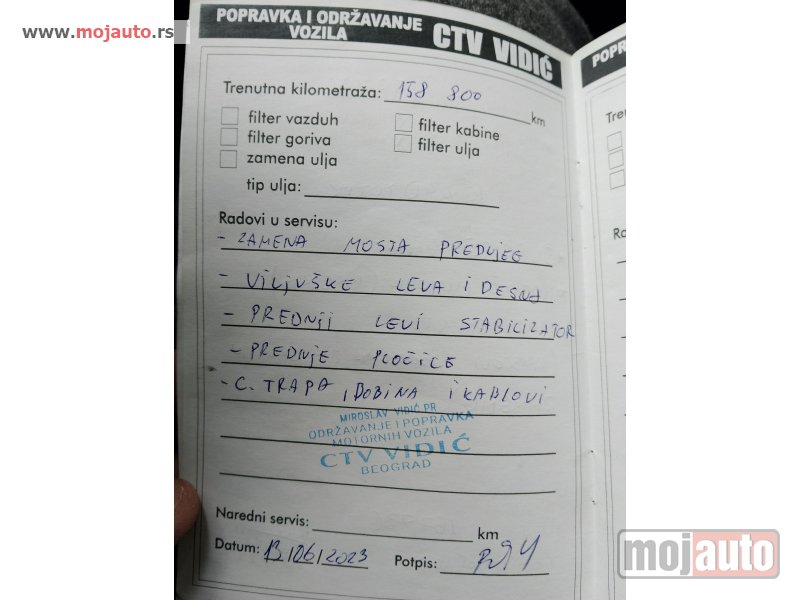 www.mojauto.rs
POPRAVKA I ODRŽAVANJE
VOZILA
CTV VIDIĆ
Trenutna kilometraža: 158 800 km
filter vazduh
filter kabine
filter goriva
filter ulja
zamena ulja
tip ulja:
Radovi u servisu:
- ZAMENA MOSTA PREDNJEG
- VILJUŠKE LEVA I DESNA
- PREDNJI LEVI STABILIZATOR
- PREDNJE PLOČICE
- C. TRAPA, BOBINA I KABLOVI
MIROSLAV VIDIĆ PR
ODRŽAVANJE I POPRAVKA
MOTORNIH VOZILA
CTV VIDIĆ
BEOGRAD
Naredni servis: km
Datum: 13/06/2023 Potpis:
POPR
Tre
Ra
mojauto